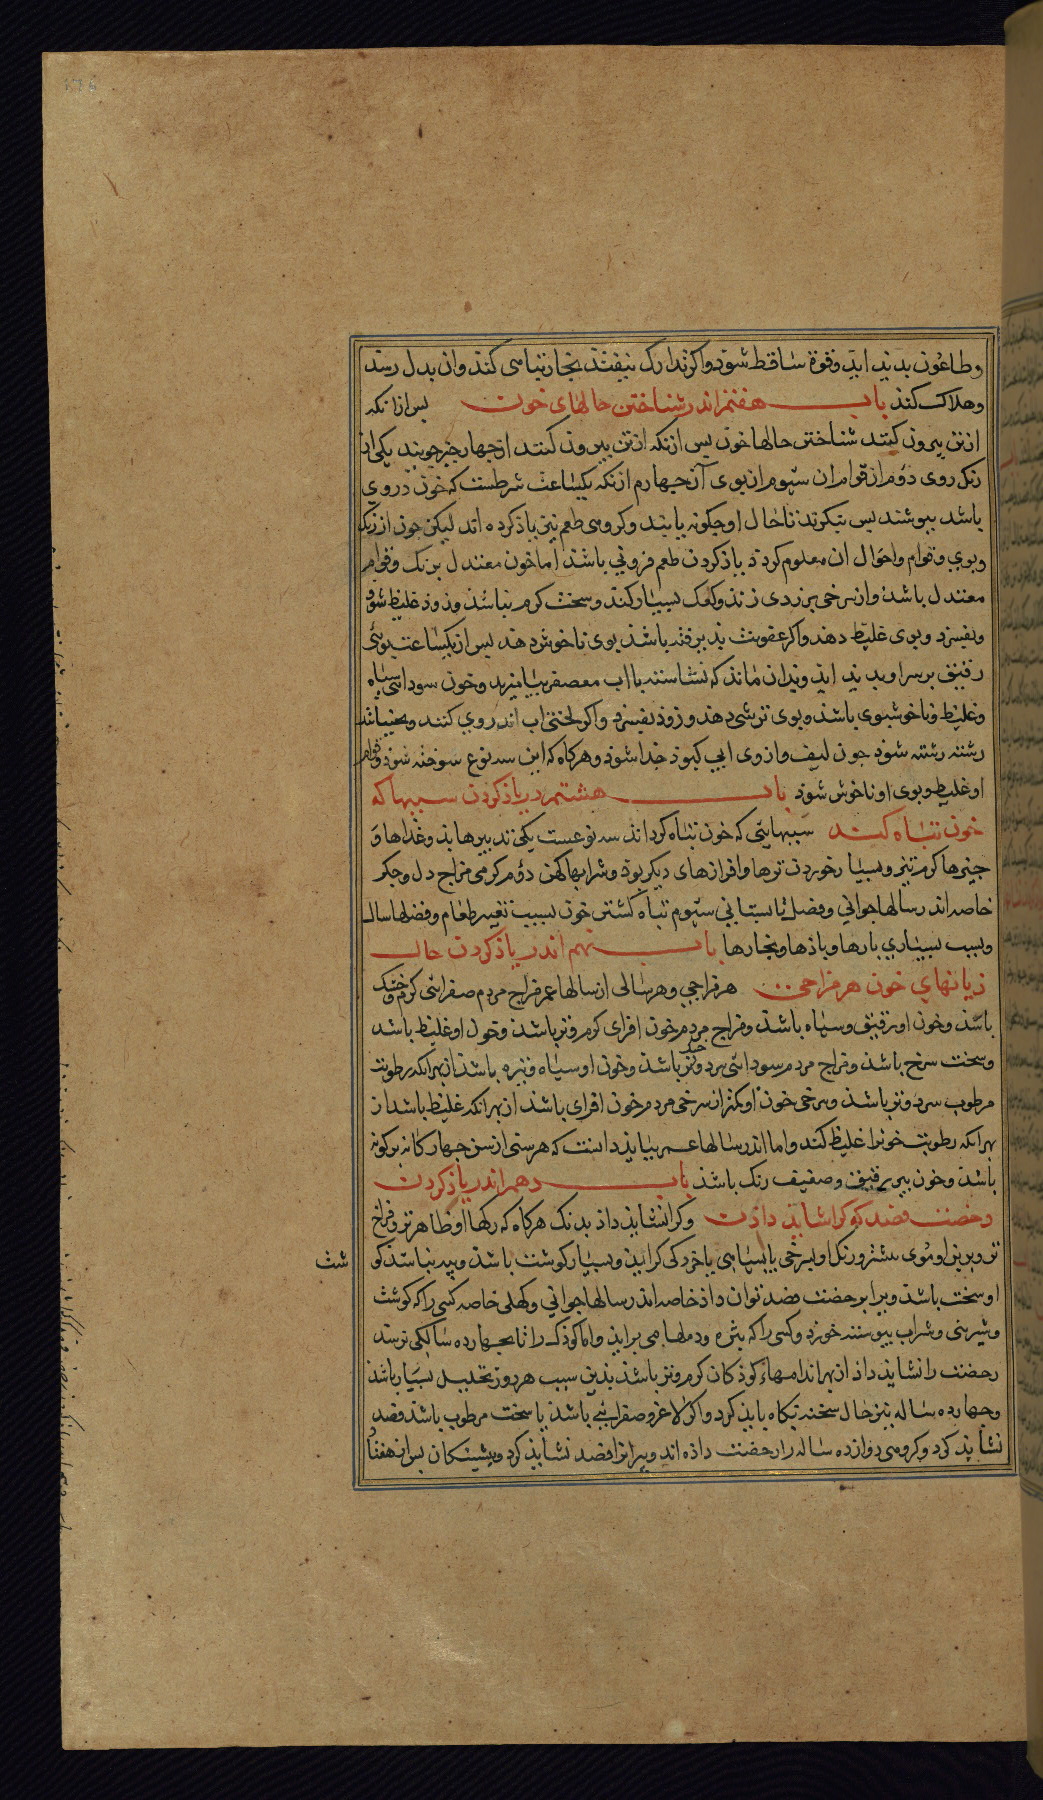 وطاعون بدید اید وقوة ساقط شود واکر تدارک نیفتد بخار تباهی کند وان بدل رسد
وهلاک کند باب هفتم اندر شناختن حالهای خون بس از انکه
از تن بیرون کنند شناختن حالها خون بس ازنکه از تن بیرون کنند از جهار جیز جویند یکی از
رنک روی دوم از قوام ان سیوم از بوی آن جهارم ازنکه یکساعت شرطست که خون در وی
باشد ببوشند بس بنکرند تا حال او جکونه یابند وکروهی طعم نیز یاذ کرده اند لیکن جون از رنک
وبوی وقوام واحوال ان معلوم کردد یاذ کردن طعم فزونی باشد اما خون معتدل برنک وقوام
معتدل باشد وان سرخی بزردی زند وکفک بسیار کند وسخت کرم نباشد وزوذ غلیظ شود
وبفسرد وبوی غلیظ دهد واکر عفونت بذیرفته باشد بوی ناخوش دهد بس از یکساعت
رقیق بر سر او بدید اید وبدان ماند که نشاسته بااب معصفر بیامیزند وخون سودائی سیاه
وغلیظ وناخوشبوی باشد وبوی ترشی دهد وزوذ بفسرد واکر لختی اب اندر وی کنند وبجنبانند
رشته رشته شود جون لیف وازوی ابی کبوذ جذا شود وهرکاه که این سه نوع سوخته شود وقوام
او غلیظ وبوی او ناخوش شود باب هشتم در یاذ کردن سببها که
خون تباه کند سببهایی که خون تباه کرداند سه نوعست یکی تدبیرها بد وغذاها و
جیزها کرم تیز وبسیار خوردن ترها وافزارهای دیکر بوذ وشرابها کهن دوم کرمی مزاج دل وجکر
خاصه اندر سالها جوانی وفصل تابستانی سیوم تباه کشتن خون بسبب تغییر طعام وفصلها سال
وبسبب بسیاری بارها وباذها وبخارها باب نهم اندر یاذ کردن حال
زیانهای خون هر مزاجی هر مزاجی وهر سالی از سالها عمر مزاج مردم صفرائی کرم وخشک
باشد وخون او رقیق وسیاه باشد ومزاج مردم خون افزای کرم وتر باشد وخون او غلیظ باشد
وسخت سرخ باشد ومزاج مردم سودائی سرد وخشک باشد وخون او سیاه وتیره باشد از بهر انکه رطوبت
مرطوب سرد وتر باشد وسرخی خون او کمتر از سرخی مردم خون افزای باشد از بهر انکه غلیظ باشد از
بهر انکه رطوبت خونرا غلیظ کند واما اندر سالها عمر بباید دانست که هر سنی از سن جهارکانه برکونه
باشد وخون بیر رقیق وضعیف رنک باشد باب دهم اندر یاذ کردن
رخصت فصد کو کرا شاید داذن وکرا نشاید داذ بدنک هرکاه که رکها او ظاهرتر وفراخ
تر وبرین او موی بیشتر ورنک او بسرخی یا بسیاهی یا خردکی کراید وبسیار کوشت باشد وبیه نباشد کو
شت
او سخت باشد وبرابر رخصت فصد توان داذ خاصه اندر سالها جوانی وکهلی خاصه کسی راکه کوشت
وشیرینی وشراب بیوسته خورد وکسی راکه بثره ودملها می براید واما کوذک را تا بجهارده سالکی نرسد
رخصت را نشاید داذ از بهر اندامهاء کوذکان کرم وتر باشد بذین سبب هر روز تحلیل بسیار باشد
وجهارده ساله نیز حال سحنه نکاه باید کرد واکر لاغر وصفرائی باشد یا سخت مرطوب باشد فصد
نشاید کرد وکروهی دوازده ساله را رخصت داذه اند وبیرانرا فصد نشاید کرد وبیشینکان بس از هفتاد